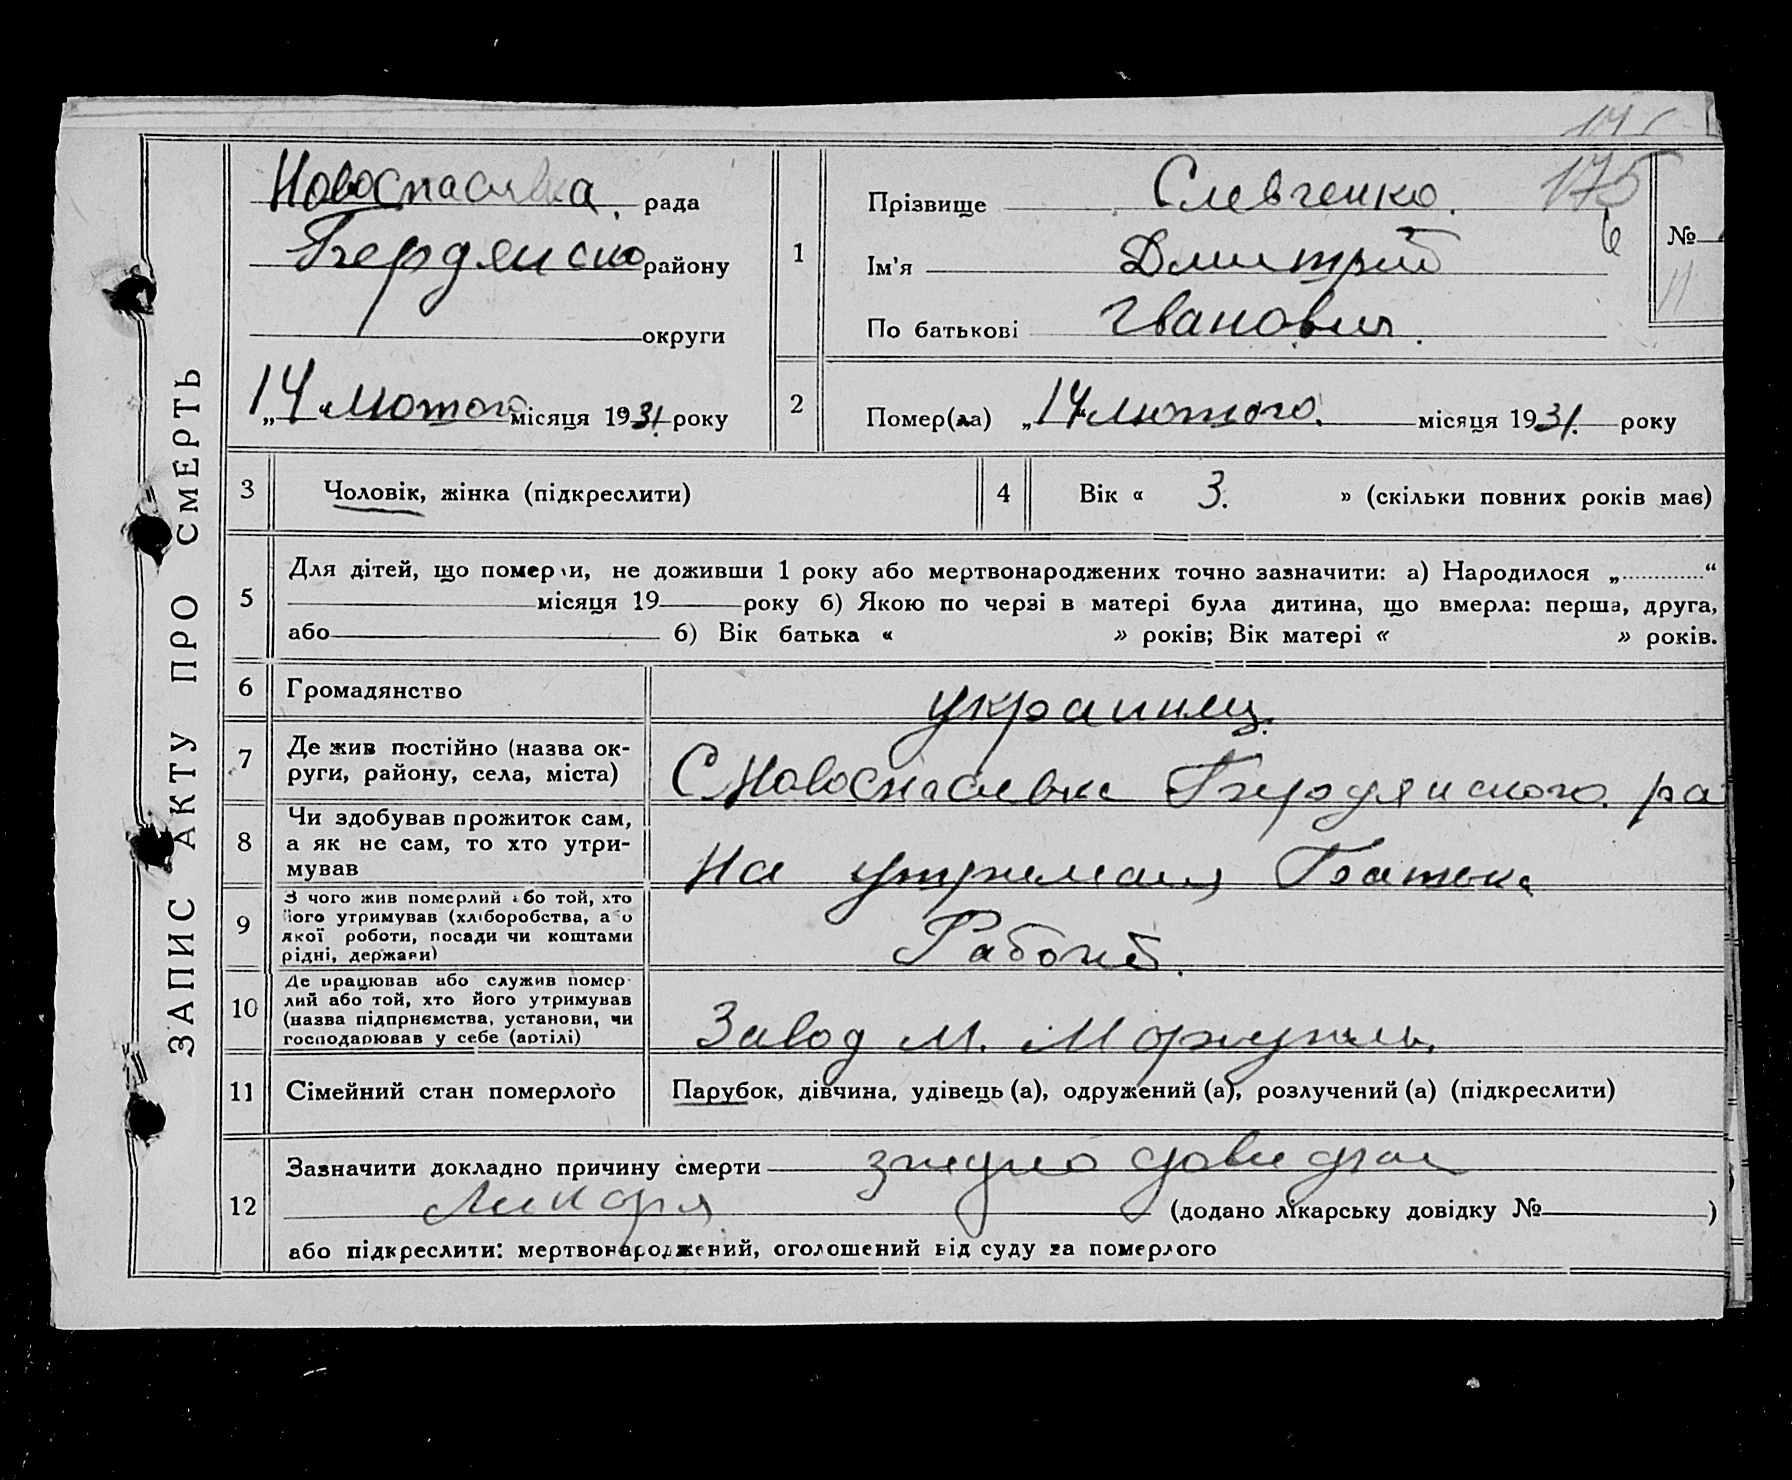 175
Новоспасивка рада
Бердянско району
округи
„14 лютого місяця 1931 року
1
Прізвище Слевченко.
Ім'я Дмитрий
По батькові Іванович.
№
11
6
2
Помер(ла) „14 лютого. місяця 1931. року
ЗАПИС АКТУ ПРО СМЕРТЬ
3 Чоловік, жінка (підкреслити)
4 Вік « 3. » (скільки повних років має)
5
Для дітей, що померли, не доживши 1 року або мертвонароджених точно зазначити: а) Народилося „..............“
місяця 19 року б) Якою по черзі в матері була дитина, що вмерла: перша, друга,
або б) Вік батька « » років; Вік матері « » років.
6 Громадянство украинец.
7
Де жив постійно (назва ок-
руги, району, села, міста)
С Новоспасивка Бердянского ра
8
Чи здобував прожиток сам,
а як не сам, то хто утри-
мував
На утриманя Батька
9
З чого жив померлий або той, хто
його утримував (хліборобства, або
якої роботи, посади чи коштами
рідні, держави)
Рабочий.
10
Де працював або служив помер-
лий або той, хто його утримував
(назва підприємства, установи, чи
господарював у себе (артілі)
Завод М.
11 Сімейний стан померлого
Парубок, дівчина, удівець (а), одружений (а), розлучений (а) (підкреслити)
12
Зазначити докладно причину смерти згидно довидки
Ликоря (додано лікарську довідку № )
або підкреслити: мертвонароджений, оголошений від суду за померлого